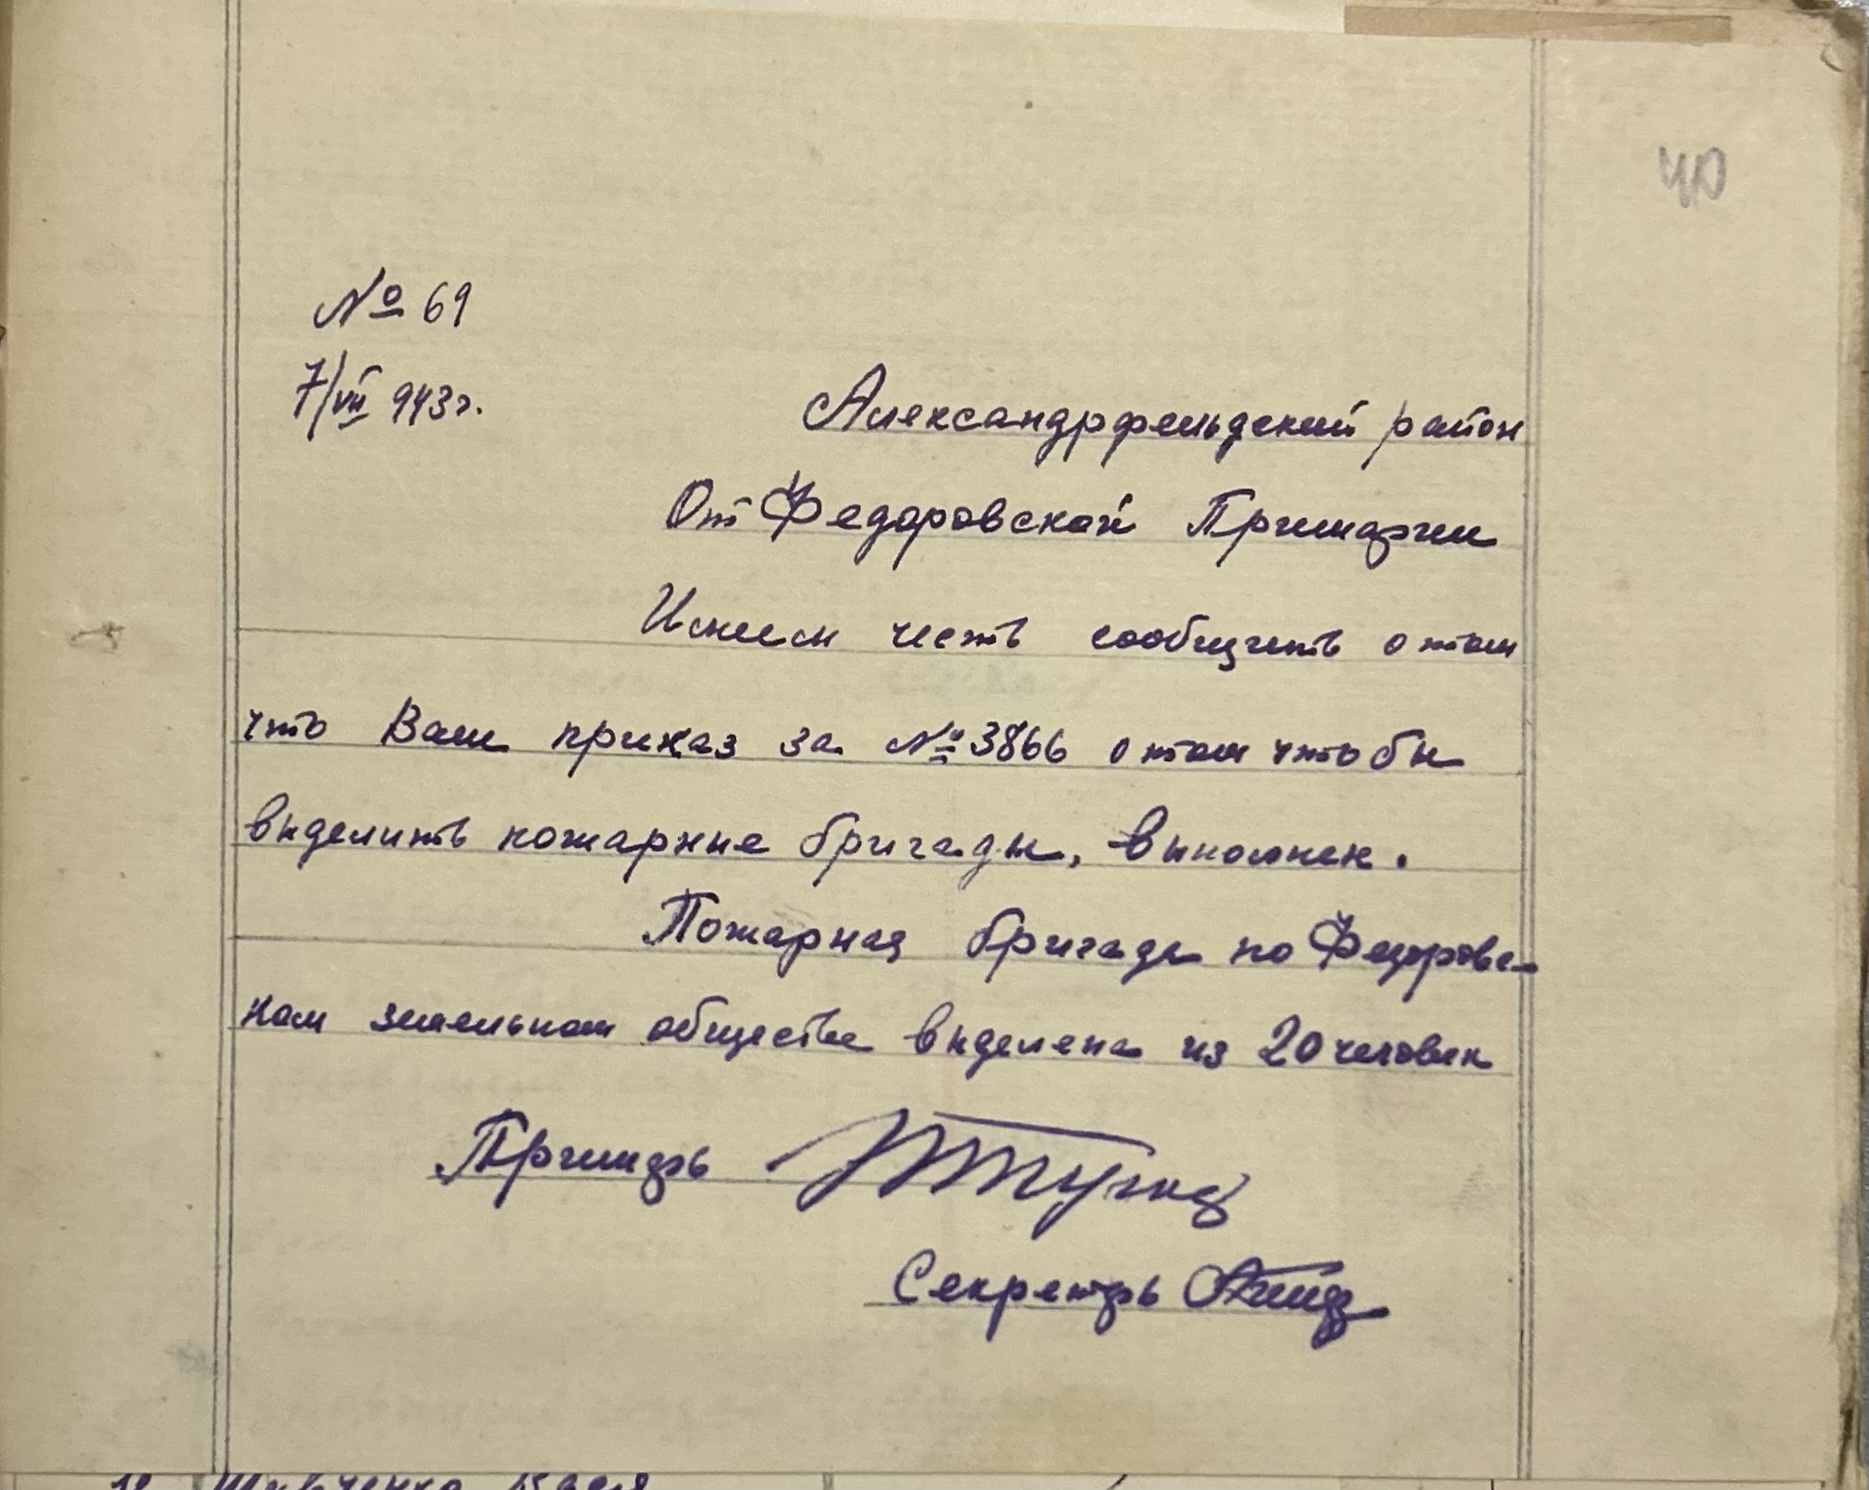 40
№ 69
7/VII 943 г.
Александрфельдский район
От Федоровской Примарии
Имеем честь сообщить о том
что Ваш приказ за № 3866 о том чтобы
выделить пожарные бригады, выполнен.
Пожарная бригада по Федоровс-
ком земельном обществе выделена из 20 человек
Примарь
Секретарь